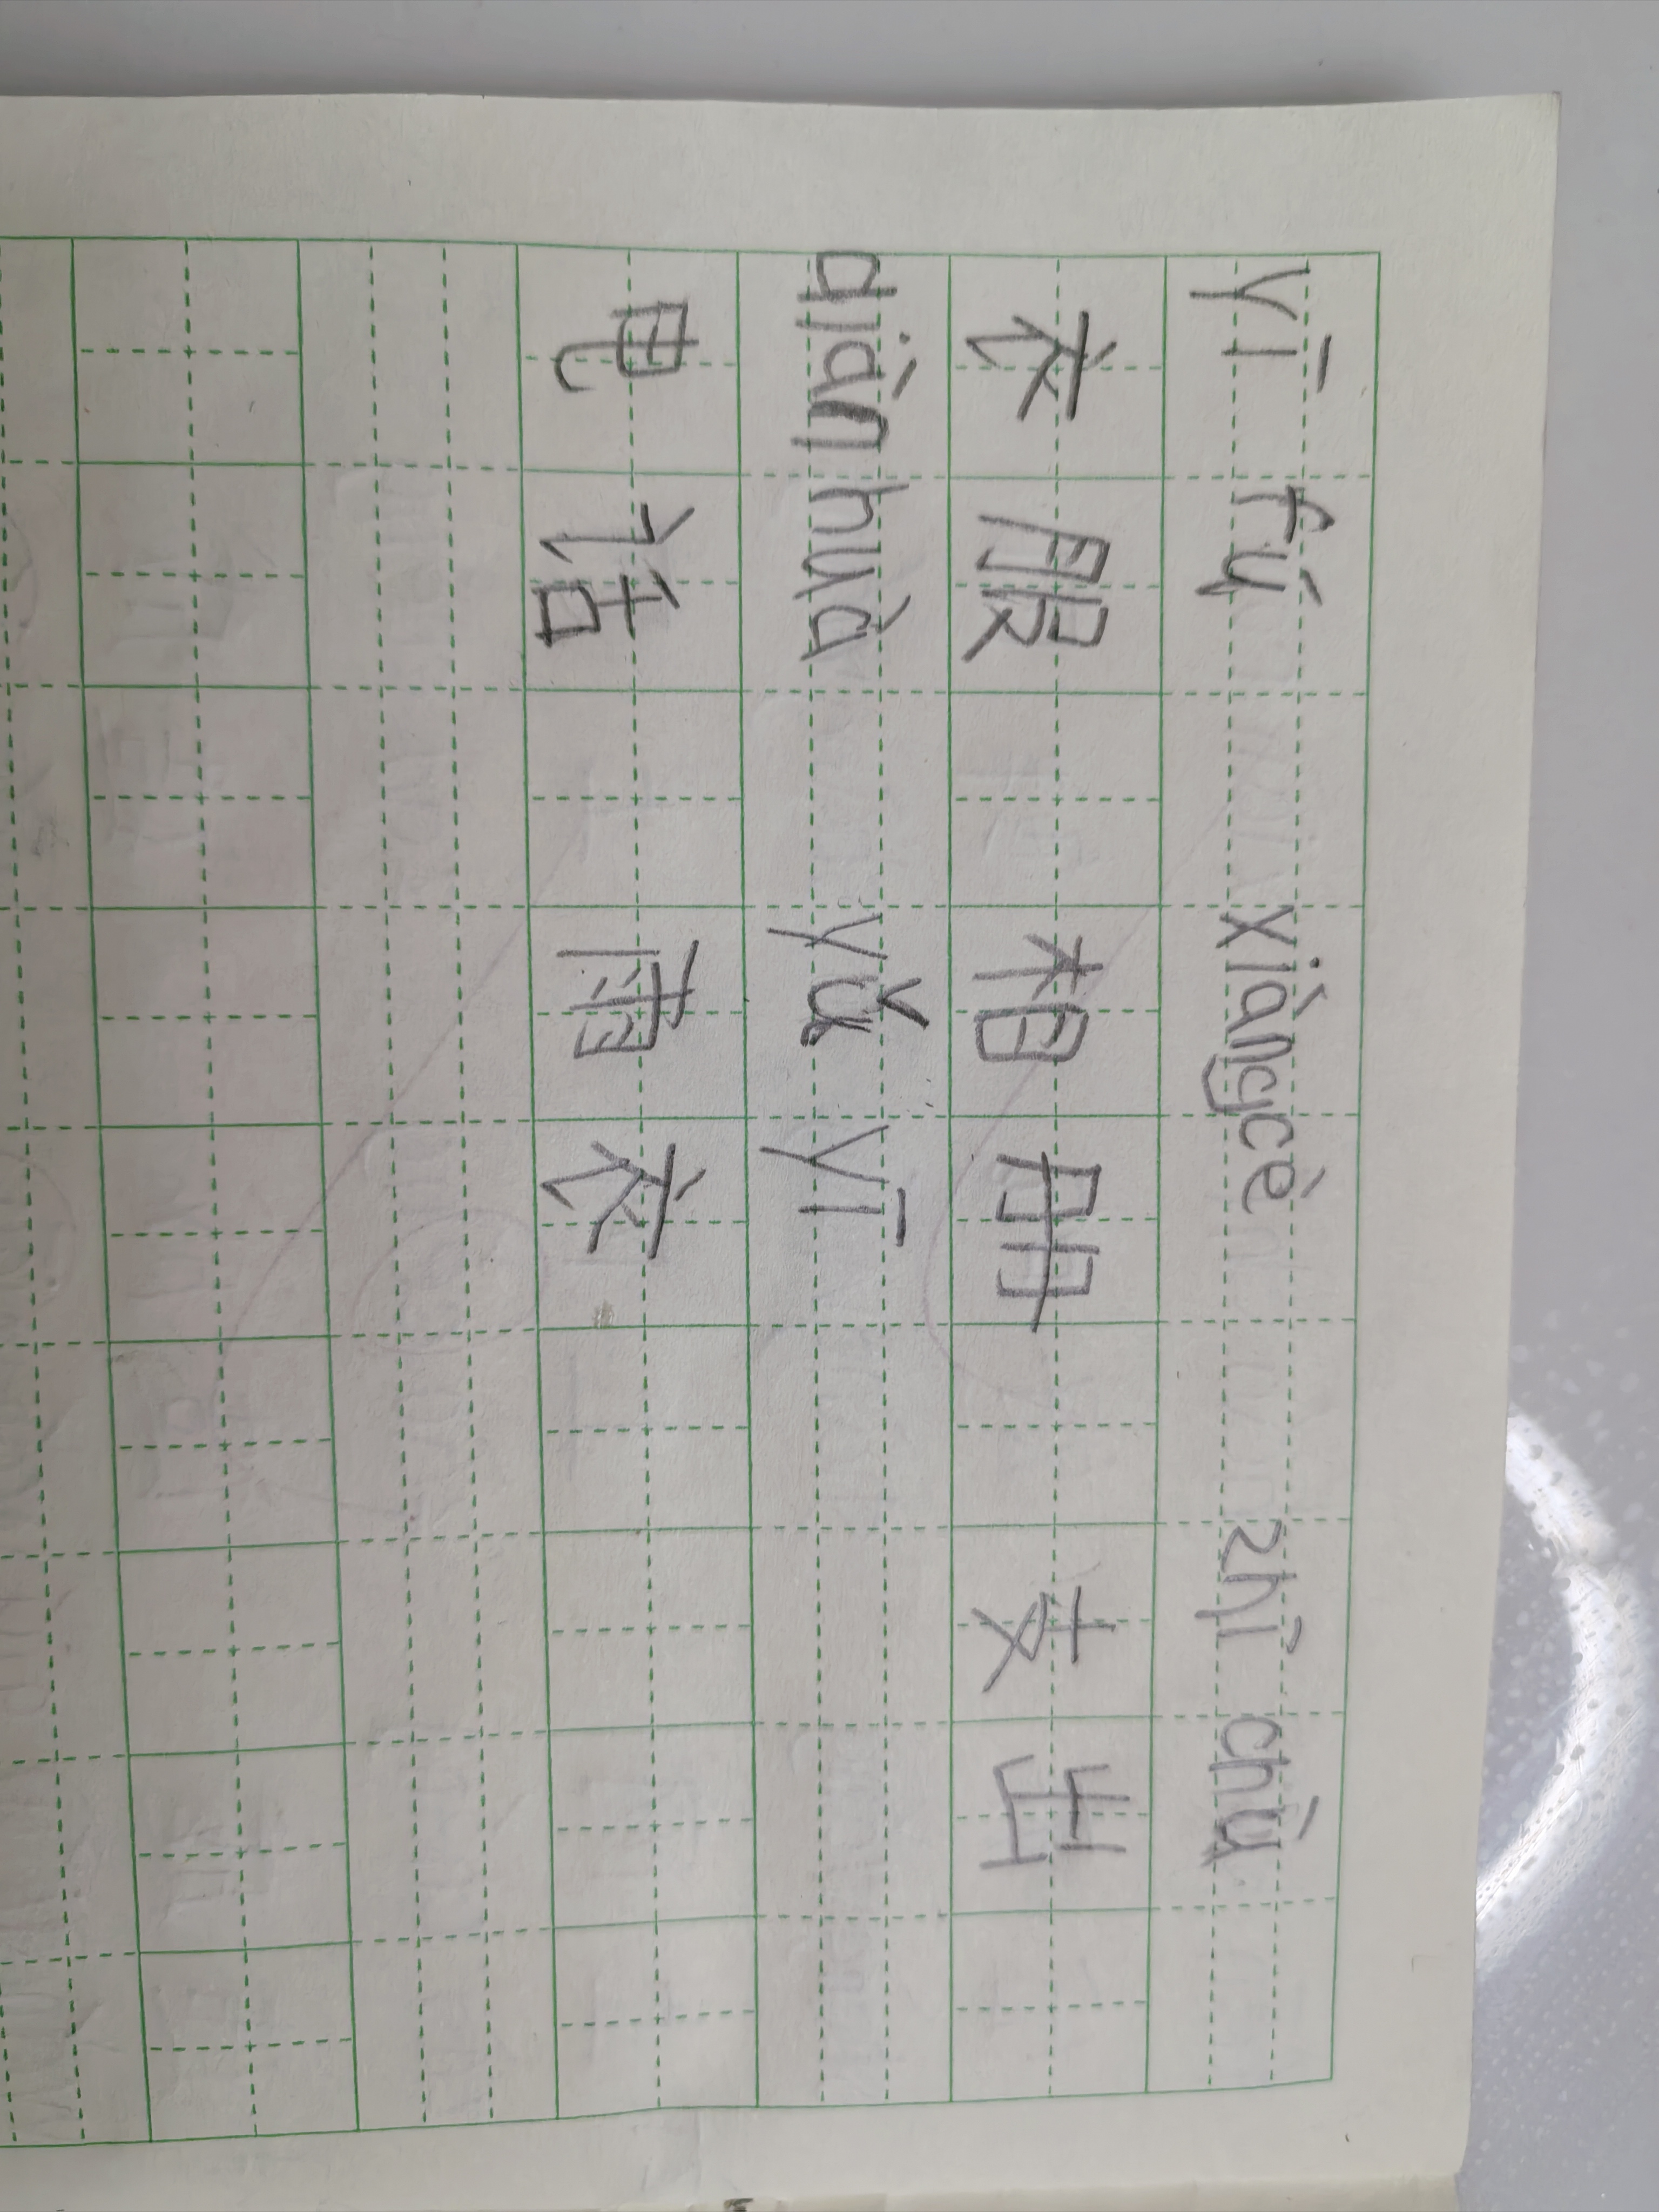 yī fú xiàngcè zhì chù
衣服 相册 支出
diàn huà yǔ yī
电话 雨衣